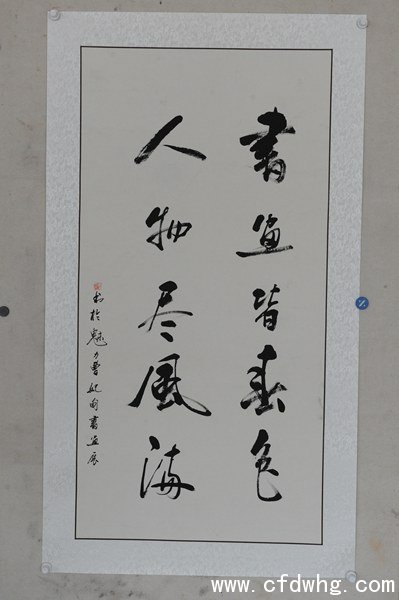 書畫皆春色
人物尽風流
书於魅力曹妃甸書畫展
www.cfdwhg.com